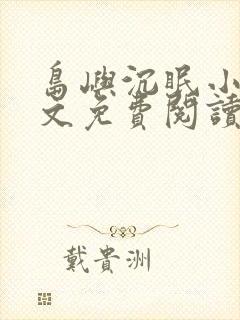 島嶼沉眠小
文免費閱讀
戴貴洲